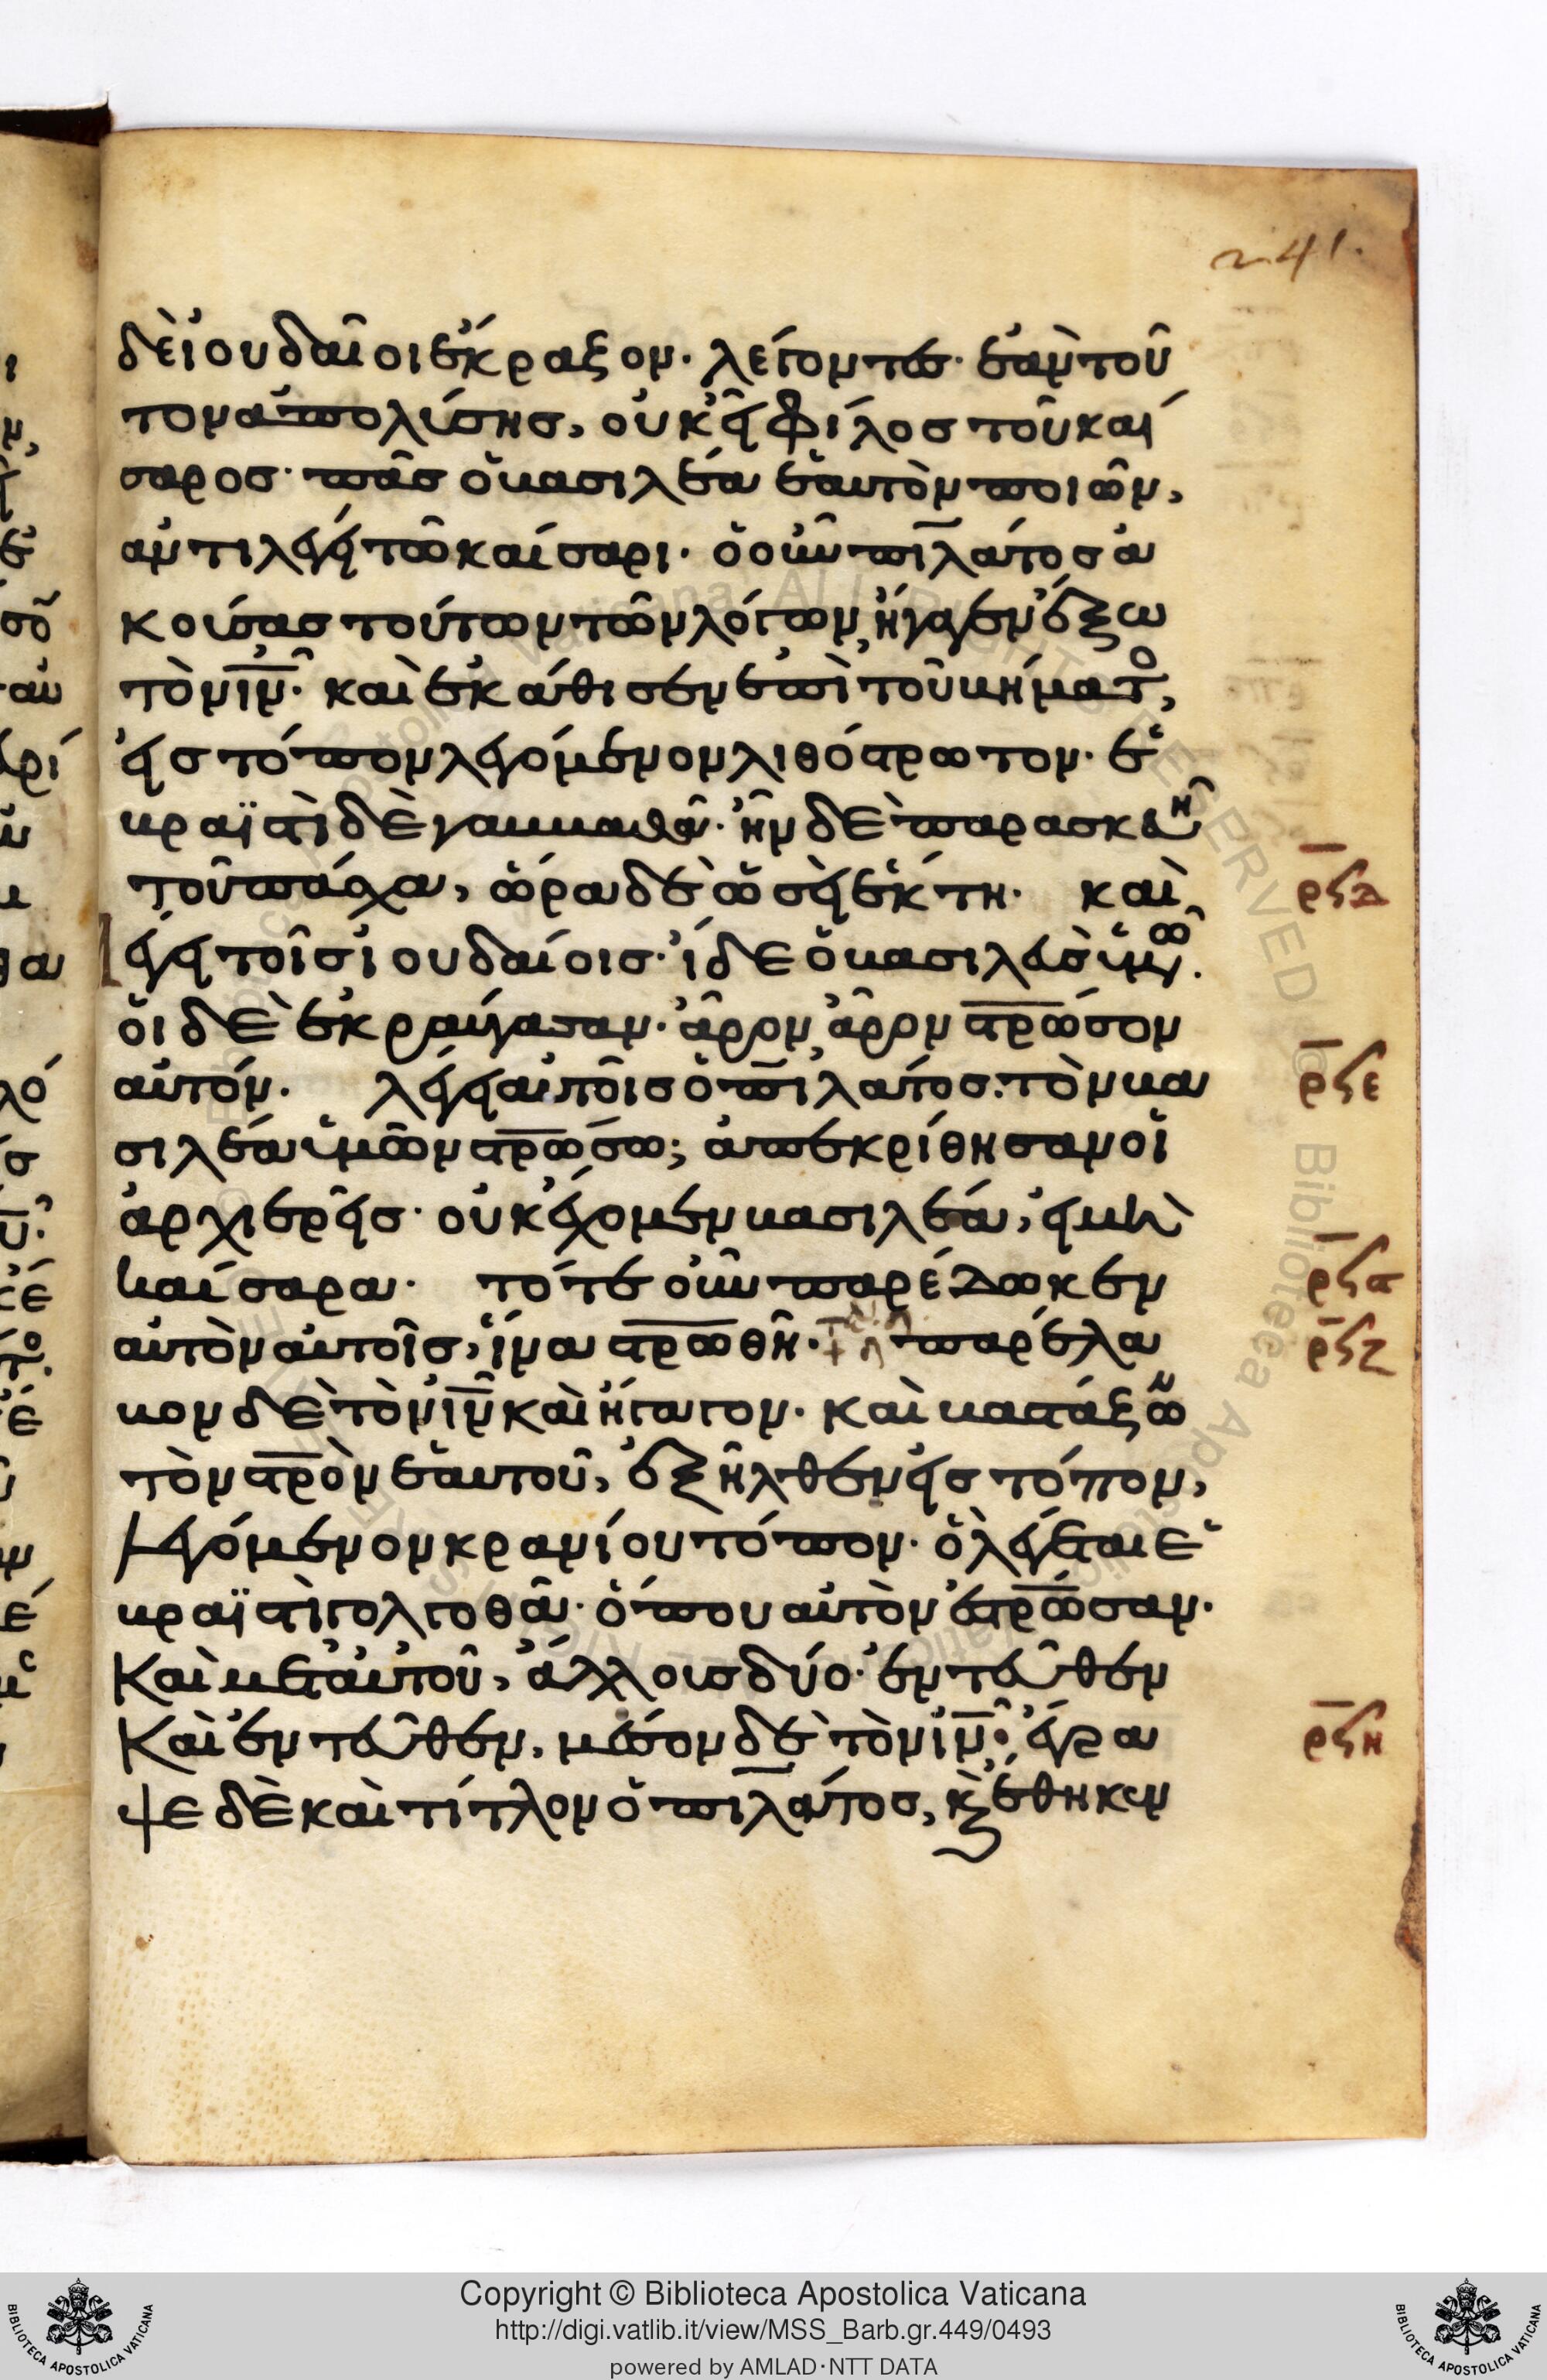 241.
δὲ ἰουδαῖοι ἔκραξον· λέγοντες· ἐὰν τοῦ
τον ἀπολύσης, οὐκ εἶ φίλος τοῦ καί
σαρος· πᾶς ὁ βασιλέα ἑαυτὸν ποιῶν,
ἀντιλέγει τῶ καίσαρι· ὁ οὖν πιλάτος ἀ
κούσας τούτων τῶν λόγων, ἤγαγεν ἔξω
τὸν ιν̅· καὶ ἐκάθισεν ἐπὶ τοῦ βήματο,
εἰς τόπον λεγόμενον λιθόστρωτον· ἑ
βραϊστὶ δὲ γαββαθᾶ· ἦν δὲ παρασκευὴ
τοῦ πάσχα, ὥρα δὲ ὡσεὶ ἕκτη· καὶ
λέγει τοῖς ἰουδαίοις· ἴδε ὁ βασιλεὺς ὑμῶν.
οἱ δὲ ἐκραύγασαν· ἆρον, ἆρον στρω̅σον
αὐτόν. λέγει αὐτοῖς ὁ πιλάτος· τὸν βα
σιλέα ὑμῶν στρω̅σω; ἀπεκρίθησαν οἱ
ἀρχιερεῖς· οὐκ ἔχομεν βασιλέα, εἰ μὴ
καίσαρα· τότε οὖν παρέδωκεν
αὐτὸν αὐτοῖς, ἵνα στρω̅θῆ· παρέλα
βον δὲ τὸν ιν̅ καὶ ἤγαγον· καὶ βαστάξων
τὸν στρο̅ν ἑαυτοῦ, ἐξῆλθεν εἰς τόπον,
λεγόμενον κρανίου τόπον· ὃ λέγεται ἑ
βραϊστὶ γολγοθᾶ· ὅπου αὐτὸν ἐστρω̅σαν·
καὶ μετ᾽ αὐτοῦ, ἄλλους δύο· ἐντεῦθεν
καὶ ἐντεῦθεν, μέσον δὲ τὸν ιν̅· ἔγρα
ψε δὲ καὶ τίτλον ὁ πιλάτος, κ ἔθηκεν
ρϟδ
ρϟε
ρϟϛ
ρϟζ
ρϟη
Copyright © Biblioteca Apostolica Vaticana
http://digi.vatlib.it/view/MSS_Barb.gr.449/0493
powered by AMLAD·NTT DATA
BIBLIOTECA APOSTOLICA VATICANA
BIBLIOTECA APOSTOLICA VATICANA